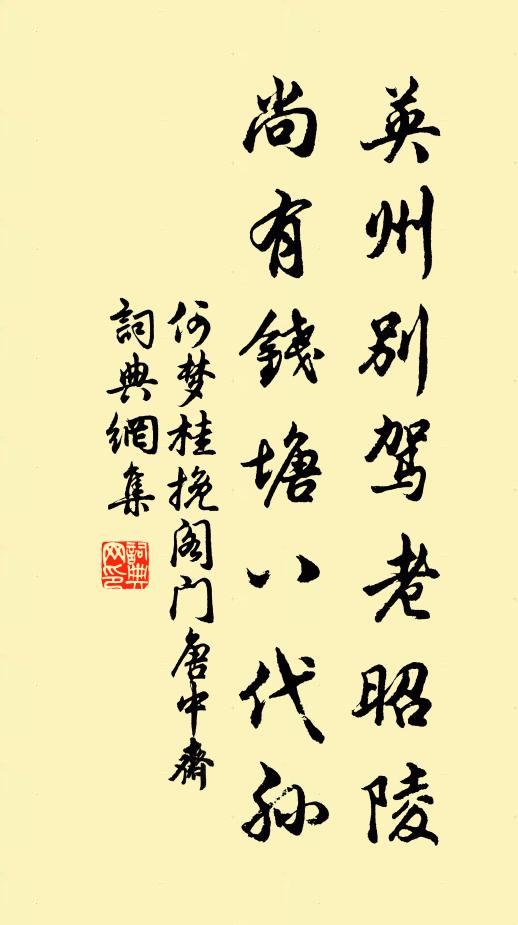 英州别驾老昭陵
尚有錢塘八代孙
何梦桂挽阁门唐中齋
詞典網集
詞典網印